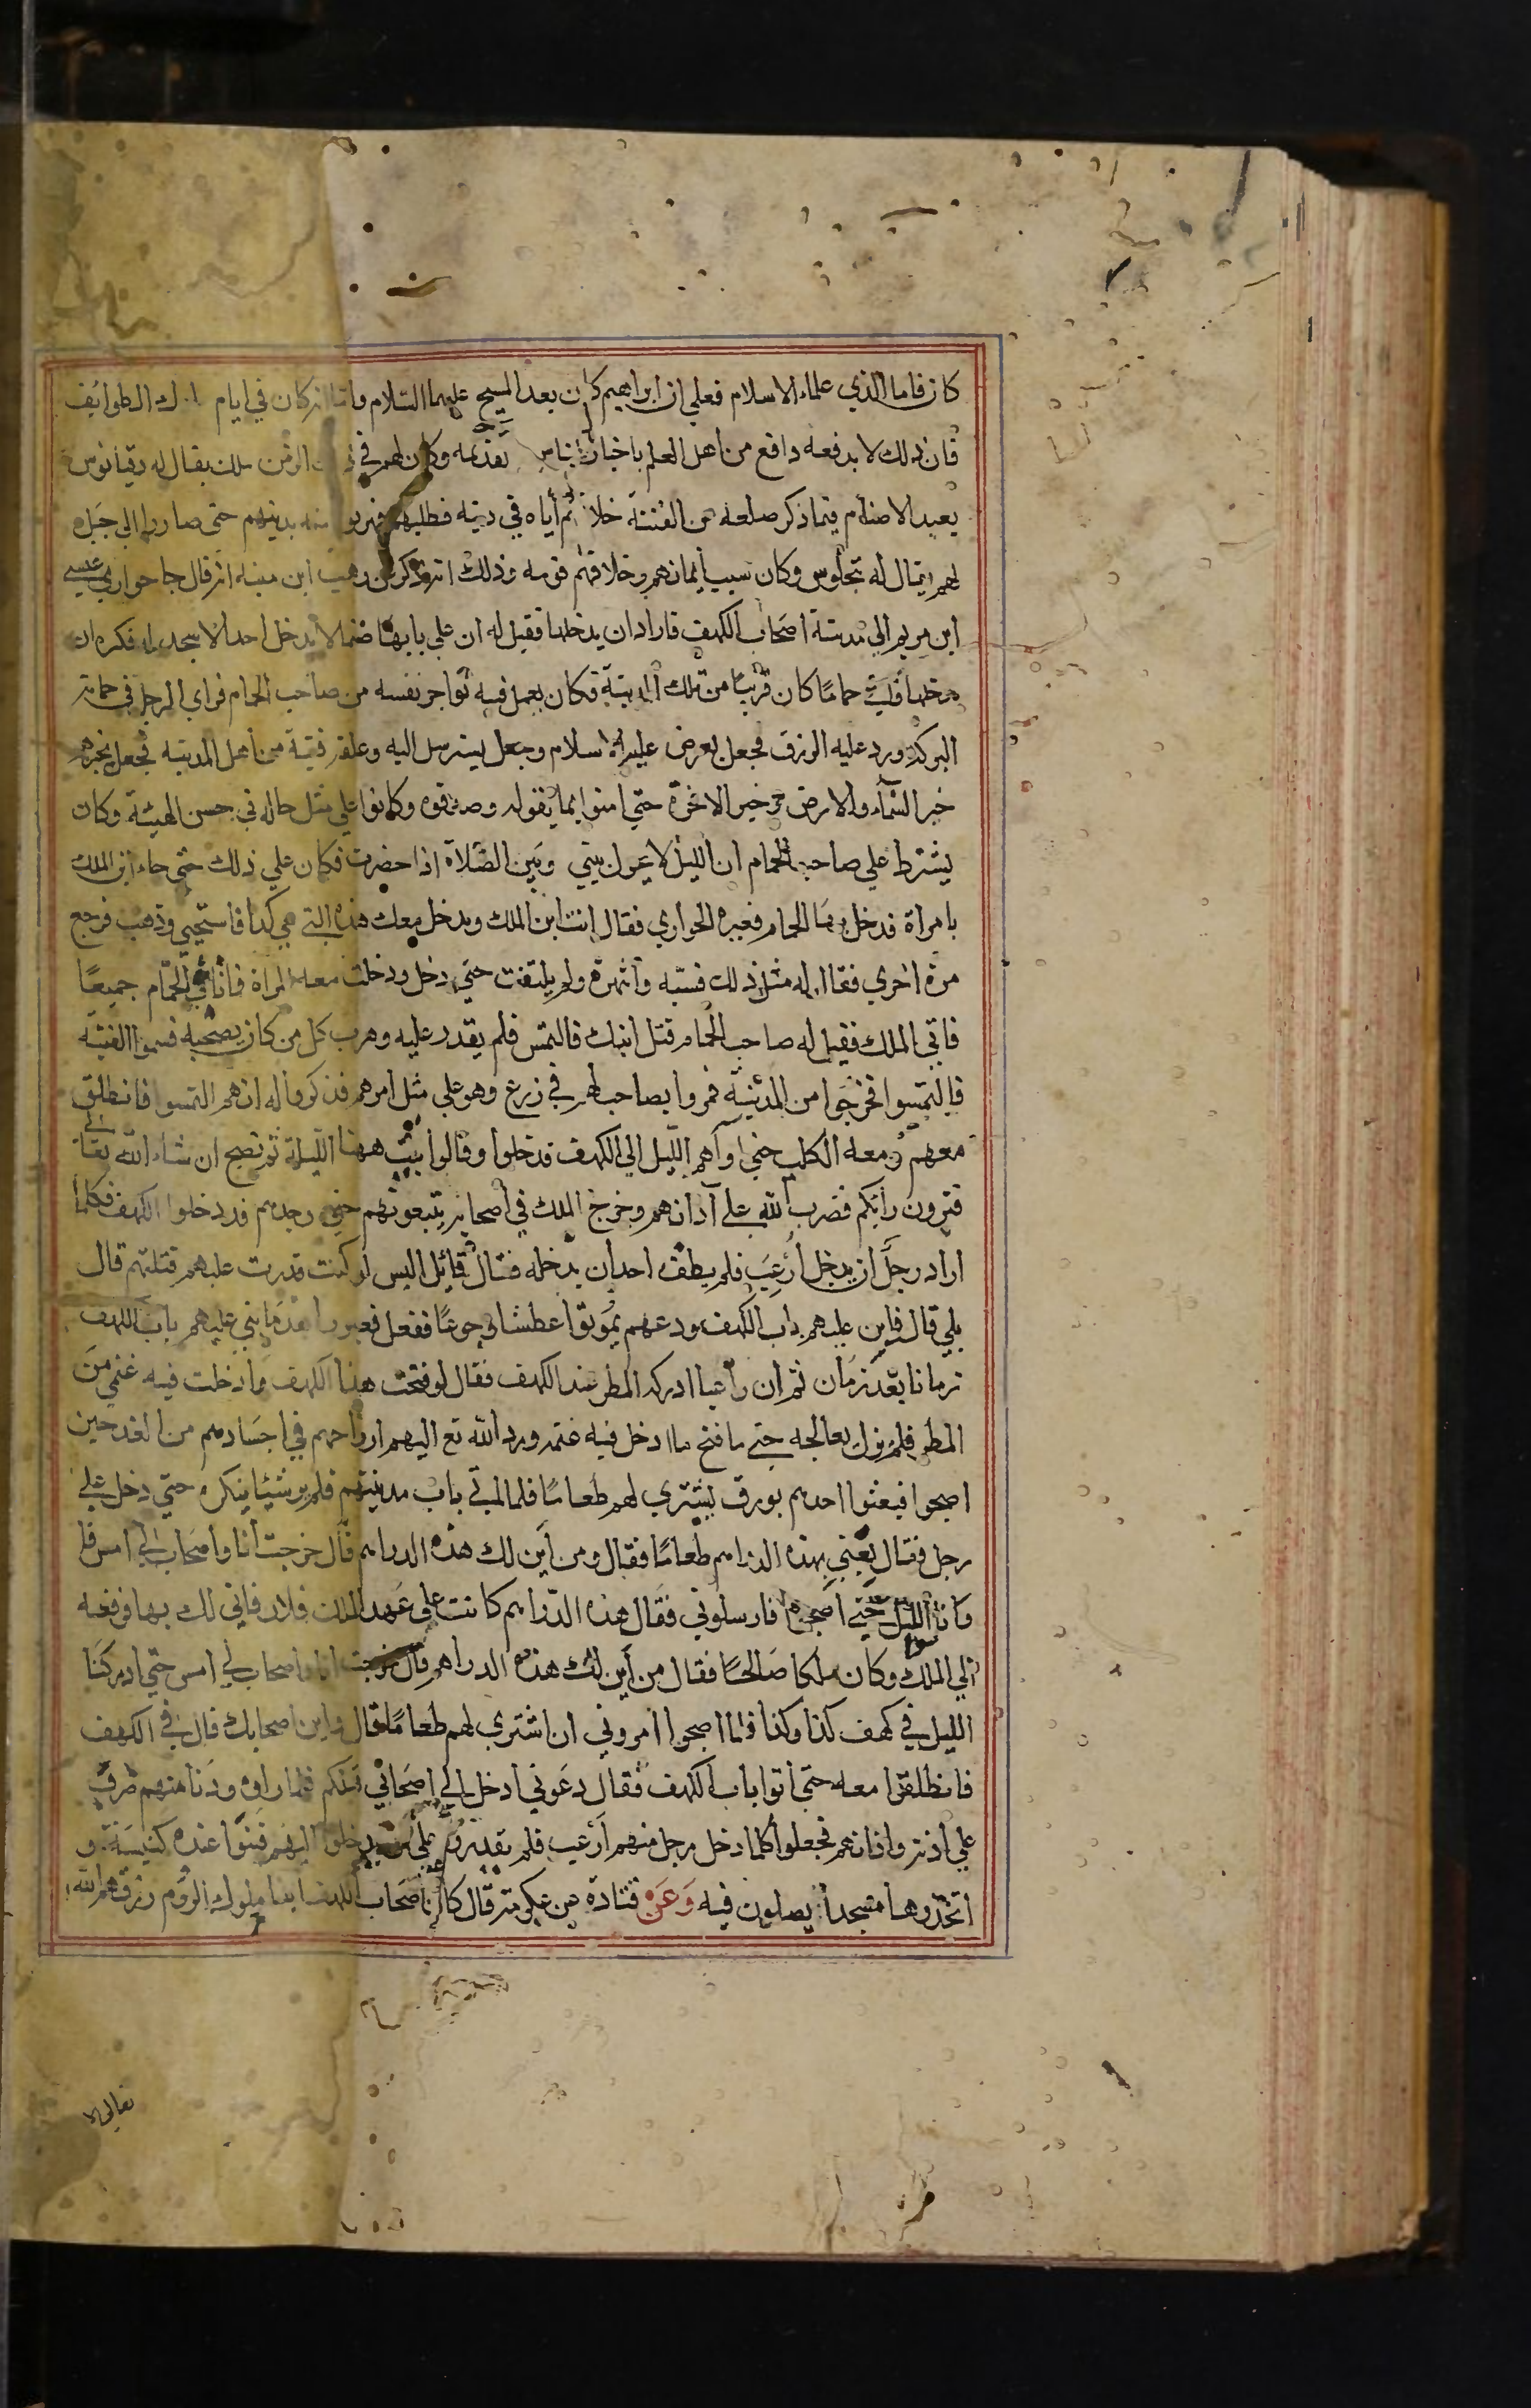 كان فاما الذي علماء الاسلام فعلي ان ابراهيم كان بعد المسيح عليهما السلام واما انه كان في ايام ملوك الطوايف
فان ذلك لا يدفعه دافع من اهل العلم باخبار الناس القديمه وكان لهم في ذلك الزمن ملك يقال له دقيانوس
يعبد الاصنام فيما ذكر صلعه عن الفتنة خلافهم أياه في دينه فطلبهم فهربوا منه بدينهم حتى صاروا الى جبل
لهم يقال له نجلوس وكان سبب ايمانهم وخلافهم قومه وذلك انه ذكر عن وهب ابن منبه انه قال جا حواري عيسى
ابن مريم الي مدينة اصحاب الكهف فاراد ان يدخلها فقيل له ان علي بابها صنما لا يدخل احد الا سجد له فكره ان
يدخلها فاتى حمامًا كان قريبًا من تلك المدينة فكان يعمل فيه يواجر نفسه من صاحب الحمام فراي الرجل في حمامه
البركة ودر عليه الرزق فجعل يعرض عليه الاسلام وجعل يسترسل اليه وعلقه فتية من اهل المدينه فجعل يخبرهم
خبر السمآء والارض وخبر الاخرة حتي امنوا بما يقوله وصدقوه وكانوا علي مثل حاله في حسن الهيئة وكان
يشترط علي صاحب الحمام ان الليل لا يحول بيني وبين الصلاة اذا حضرت فكان علي ذلك حتى جاء ابن الملك
بامراة فدخل بها الحمام فعيره الحواري فقال انت ابن الملك ويدخل معك هذه التي هي كذا فاستحيى وذهب فرجع
مرة اخري فقال له مثل ذلك فسبه وانتهره ولم يلتفت حتي دخل ودخلت معه المراة فماتا في الحمام جميعًا
فاتي الملك فقيل له صاحب الحمام قتل ابنك فالتمس فلم يقدر عليه وهرب كل من كان يصحبه فسموا الفتية
فالتمسوا فخرجوا من المدينة فمروا بصاحب لهم في زرع وهو علي مثل امرهم فذكروا له انهم التمسوا فانطلق
معهم ومعه الكلب حتي اواهم الليل الي الكهف فدخلوا وقالوا نبيت ههنا الليلة ثم نصبح ان شاء الله تعالى
فترون رأيكم فضرب الله على آذانهم وخرج الملك في اصحابه يتبعونهم حتى وجدهم قد دخلوا الكهف فكلما
اراد رجل ان يدخل أرعب فلم يطق احد ان يدخله فقال قائل اليس لو كنت قدرت عليهم قتلتهم قال
بلي قال فابن عليهم باب الكهف ودعهم يموتوا عطشا وجوعًا ففعل فعبروا بعد ما بني عليهم باب الكهف
زمانا بعد زمان ثم ان راعيا ادركه المطر عند الكهف فقال لو فتحت هذا الكهف وادخلت فيه غنمي من
المطر فلم يزل يعالجه حتى ما فتح ما ادخل فيه غنمه ورد الله تع اليهم ارواحهم في اجسادهم من الغد حين
اصبحوا فبعثوا احدهم بورق يشتري لهم طعامًا فلما اتى باب مدينتهم فلم ير شيئا ينكره حتي دخل على
رجل فقال بعني بهذه الدراهم طعامًا فقال ومن أين لك هذه الدراهم قال خرجت أنا واصحاب لي امس فا
وانا الليل حتى اصبحوا فارسلوني فقال هذه الدراهم كانت علي عهد الملك فلان فاني لك بها فرفعه
الي الملك وكان ملكا صالحًا فقال من أين لك هذه الدراهم قال خرجت انا واصحاب لي امس حتي ادركنا
الليل في كهف كذا وكذا فلما اصبحوا امروني ان اشتري لهم طعامًا قال واين اصحابك قال في الكهف
فانطلقوا معه حتي اتوا باب الكهف فقال دعوني ادخل الي اصحابي قبلكم فلما راوه ودنا منهم ضرب
علي أذنه واذانهم فجعلوا كلما دخل رجل منهم أرعب فلم يقدروا علي ان يدخلوا اليهم فبنوا عنده كنيسة و
اتخذوها مسجدا يصلون فيه وعن قتادة عن عكرمة قال كان اصحاب الكهف ابنا ملوك الروم رزقهم الله
تعالى الا